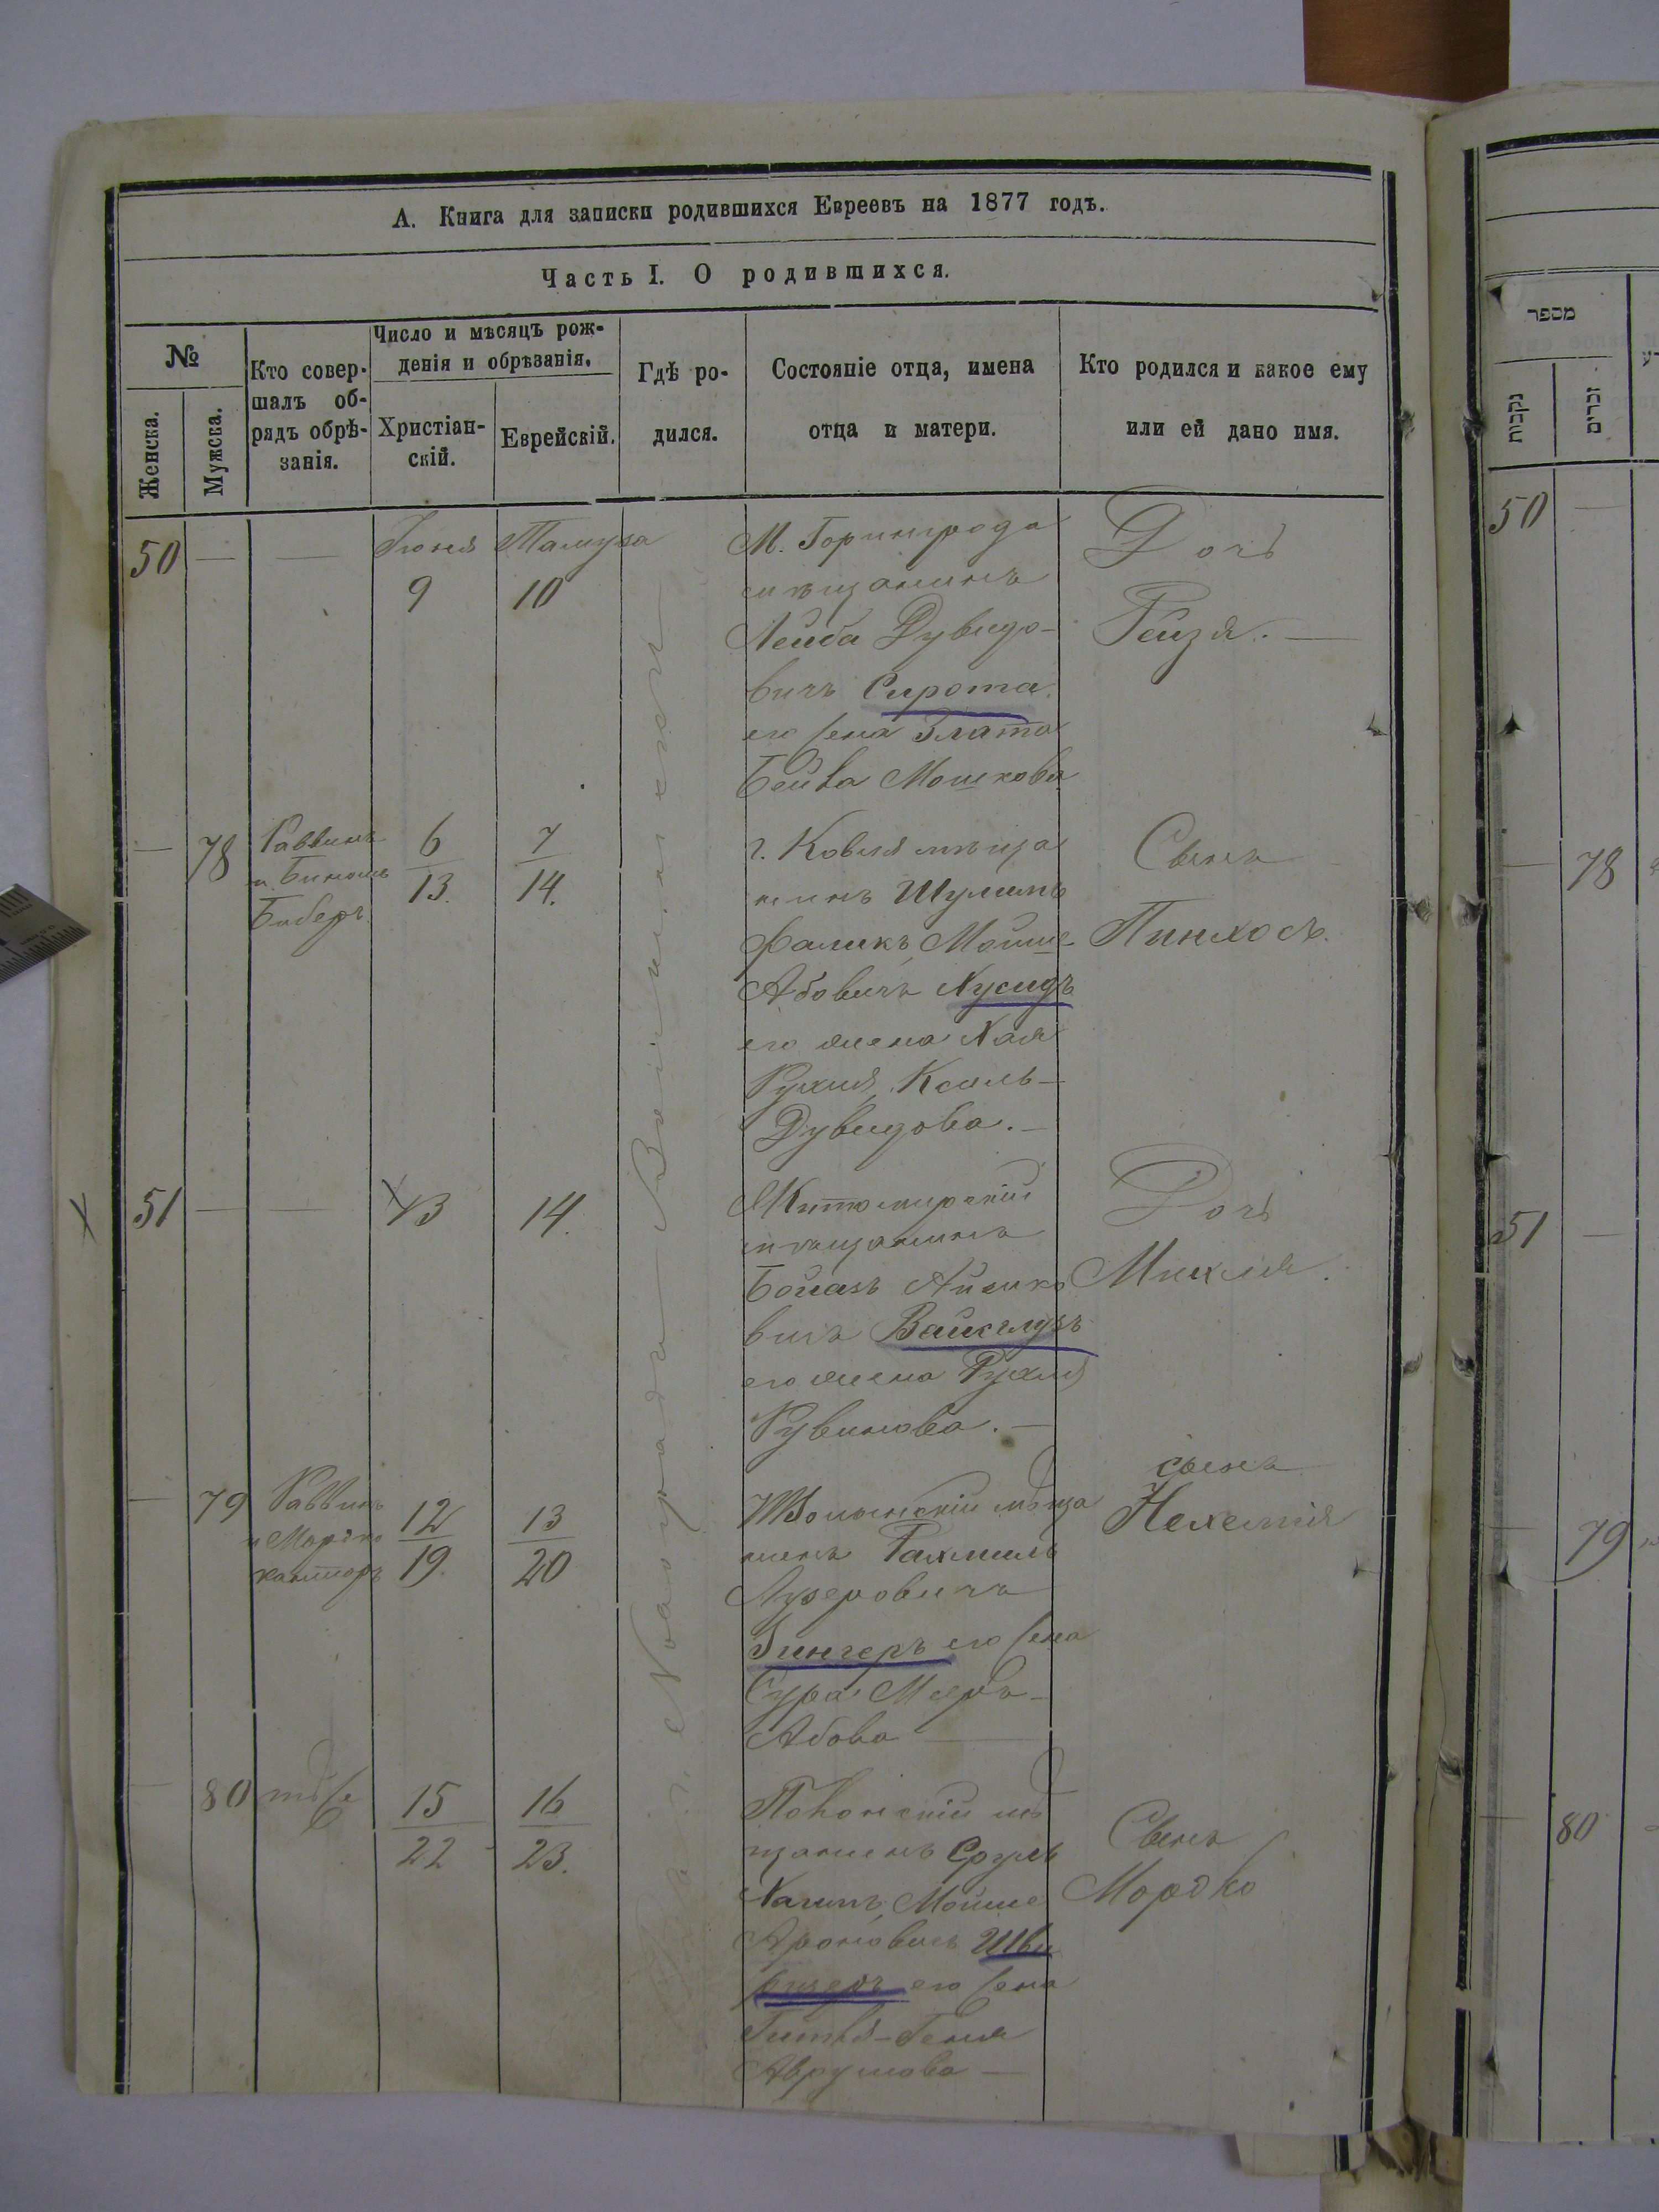 А. Книга для записки родившихся Евреевъ на 1877 годъ.
Часть I. О родившихся.
№
Женска.
Мужска.
Кто совер-
шалъ об-
рядъ обрѣ-
занія.
Число и мѣсяцъ рож-
денія и обрѣзанія.
Христіан-
скій.
Еврейскій.
Гдѣ ро-
дился.
Состояніе отца, имена
отца и матери.
Кто родился и какое ему
или ей дано имя.
50 — — Іюня Тамуза
9 10
М. Горинграда
мѣщанинъ
Лейба Дувидо-
вичъ Сирота
его жена Злата
Бейла Мошкова
Дочь
Рейзя. —
— 78
Раввинъ
Биберъ
6 7
13. 14.
г. Ковля мѣща
нинъ Шулимъ
Фаликъ Мойше
Абовичъ Хусидъ
его жена Хая
Рухля, Кесель-
Дувидова. —
Сынъ
Пинхосъ.
51 — — 13 14.
Житомирскій
мѣщанинъ
вичъ
его жена Рухля
Рувинова. —
Дочь
Михля.
— 79
Раввинъ
и Мордко
канторъ
12 13
19. 20
мѣща
нинъ Рахмиль
Лузеровичъ
Зингеръ его жена
Сура Мееръ-
Абова —
сынъ
Нехемія
— 80 тѣже
15 16
22 23.
мѣ
щанинъ Сруль
Хаимъ, Мойше
Ароновичъ
его жена
Сынъ
Мордко
מספר
נקבות
זכרים
50 —
— 78
51 —
— 79
— 80